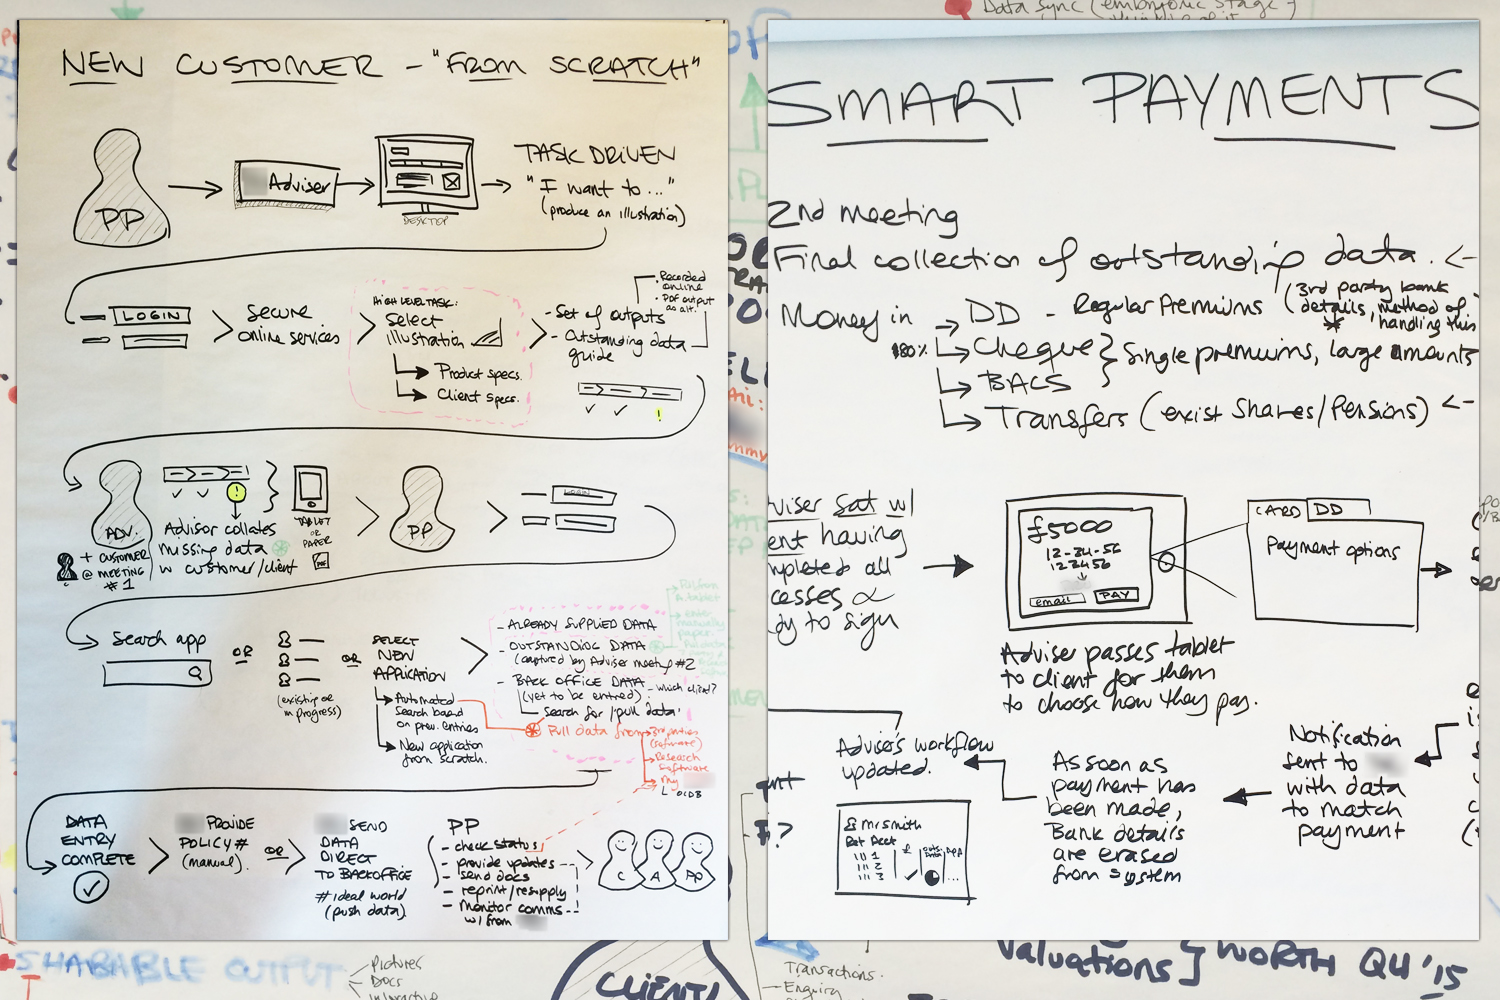 NEW CUSTOMER - "FROM SCRATCH"
PP
Adviser
DESKTOP
TASK DRIVEN
"I want to..."
(produce an illustration)
LOGIN
SECURE
online services
HIGH LEVEL TASK:
Select
illustration
Product specs.
Client specs.
- Set of outputs
- Outstanding data
guide
• Recorded
online
• PDF output
as alt.
!
ADV.
+ CUSTOMER
@ MEETING
# 1
!
Advisor collates
missing data
w customer/client
TABLET
OR
PAPER
PP
LOGIN
Search app
OR
(existing or
in progress)
OR
SELECT
NEW
APPLICATION
Automated
search based
on prev. entries
New application
from scratch.
- ALREADY SUPPLIED DATA
- OUTSTANDING DATA
(captured by Adviser meeting #2
- BACK OFFICE DATA
(yet to be entered)
- which client?
Search for /pull data
Pull data from
3rd parties
(software)
Research
software
my
OLDB
a tablet
enter
manually
paper.
DATA
ENTRY
COMPLETE
PROVIDE
POLICY #
(manual).
OR
SEND
DATA
DIRECT
TO BACKOFFICE
# ideal world
(push data)
PP
- check status
- provide updates
- send docs
- reprint/resupply
- Monitor comms
w/from
C A PP
SMART PAYMENTS
2nd meeting
Final collection of outstanding data.
Money in
DD - Regular Premiums
(3rd party bank
details, method of
handling this
80%
Cheque } Single premiums, large amounts
BACS
Transfers (exist shares/Pensions)
sat w/
having
all
to sign
£5000
12-34-56
123456
email
PAY
CARD
DD
Payment options
Adviser passes tablet
to client for them
to choose how they pay.
Notification
sent to
with data
to match
payment
As soon as
payment has
been made,
Bank details
are erased
from system
Adviser's workflow
updated.
Mr Smith
Ret Acct
111 1
111 2
111 3
£
App
...
Data sync (embryonic stage -
SHARABLE OUTPUT
Pictures
Docs
Interactive
CLIENT
Transactions.
Enquiry
Valuations } WORTH Q4 '15